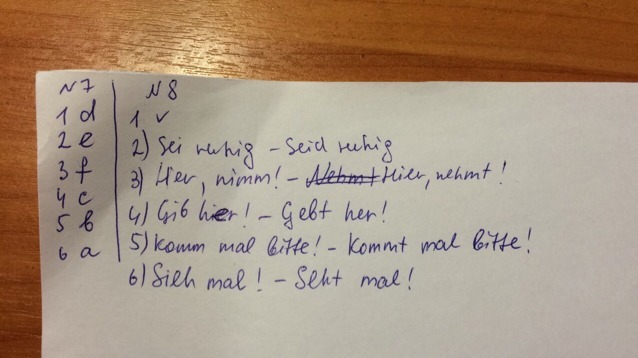 N7
1 d
2 e
3 f
4 c
5 b
6 a
N8
1 v
2) Sei ruhig – Seid ruhig
3) Hier, nimm! – Nehmt Hier, nehmt!
4) Gib her! – Gebt her!
5) Komm mal bitte! – Kommt mal bitte!
6) Sieh mal! – Seht mal!